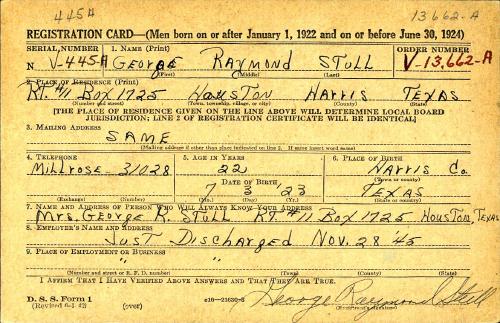 445A 13662-A
REGISTRATION CARD—(Men born on or after January 1, 1922 and on or before June 30, 1924)
SERIAL NUMBER 1. NAME (Print) ORDER NUMBER
N V-445A GEORGE RAYMOND STULL V-13,662-A
(First) (Middle) (Last)
2. PLACE OF RESIDENCE (Print)
RT. #11 BOX 1725 HOUSTON HARRIS TEXAS
(Number and street) (Town, township, village, or city) (County) (State)
[THE PLACE OF RESIDENCE GIVEN ON THE LINE ABOVE WILL DETERMINE LOCAL BOARD
JURISDICTION; LINE 2 OF REGISTRATION CERTIFICATE WILL BE IDENTICAL]
3. MAILING ADDRESS
SAME
(Mailing address if other than place indicated on line 2. If same insert word same)
4. TELEPHONE 5. AGE IN YEARS 6. PLACE OF BIRTH
Millrose 31028 22 HARRIS Co.
DATE OF BIRTH (Town or county)
7 3 '23 TEXAS
(Exchange) (Number) (Mo.) (Day) (Yr.) (State or country)
7. NAME AND ADDRESS OF PERSON WHO WILL ALWAYS KNOW YOUR ADDRESS
Mrs. GEORGE R. STULL RT #11 BOX 1725 HOUSTON, TEXAS
8. EMPLOYER'S NAME AND ADDRESS
JUST DISCHARGED NOV. 28 '45
9. PLACE OF EMPLOYMENT OR BUSINESS
" "
(Number and street or R. F. D. number) (Town) (County) (State)
I AFFIRM THAT I HAVE VERIFIED ABOVE ANSWERS AND THAT THEY ARE TRUE.
D. S. S. Form 1 George Raymond Stull
(over)